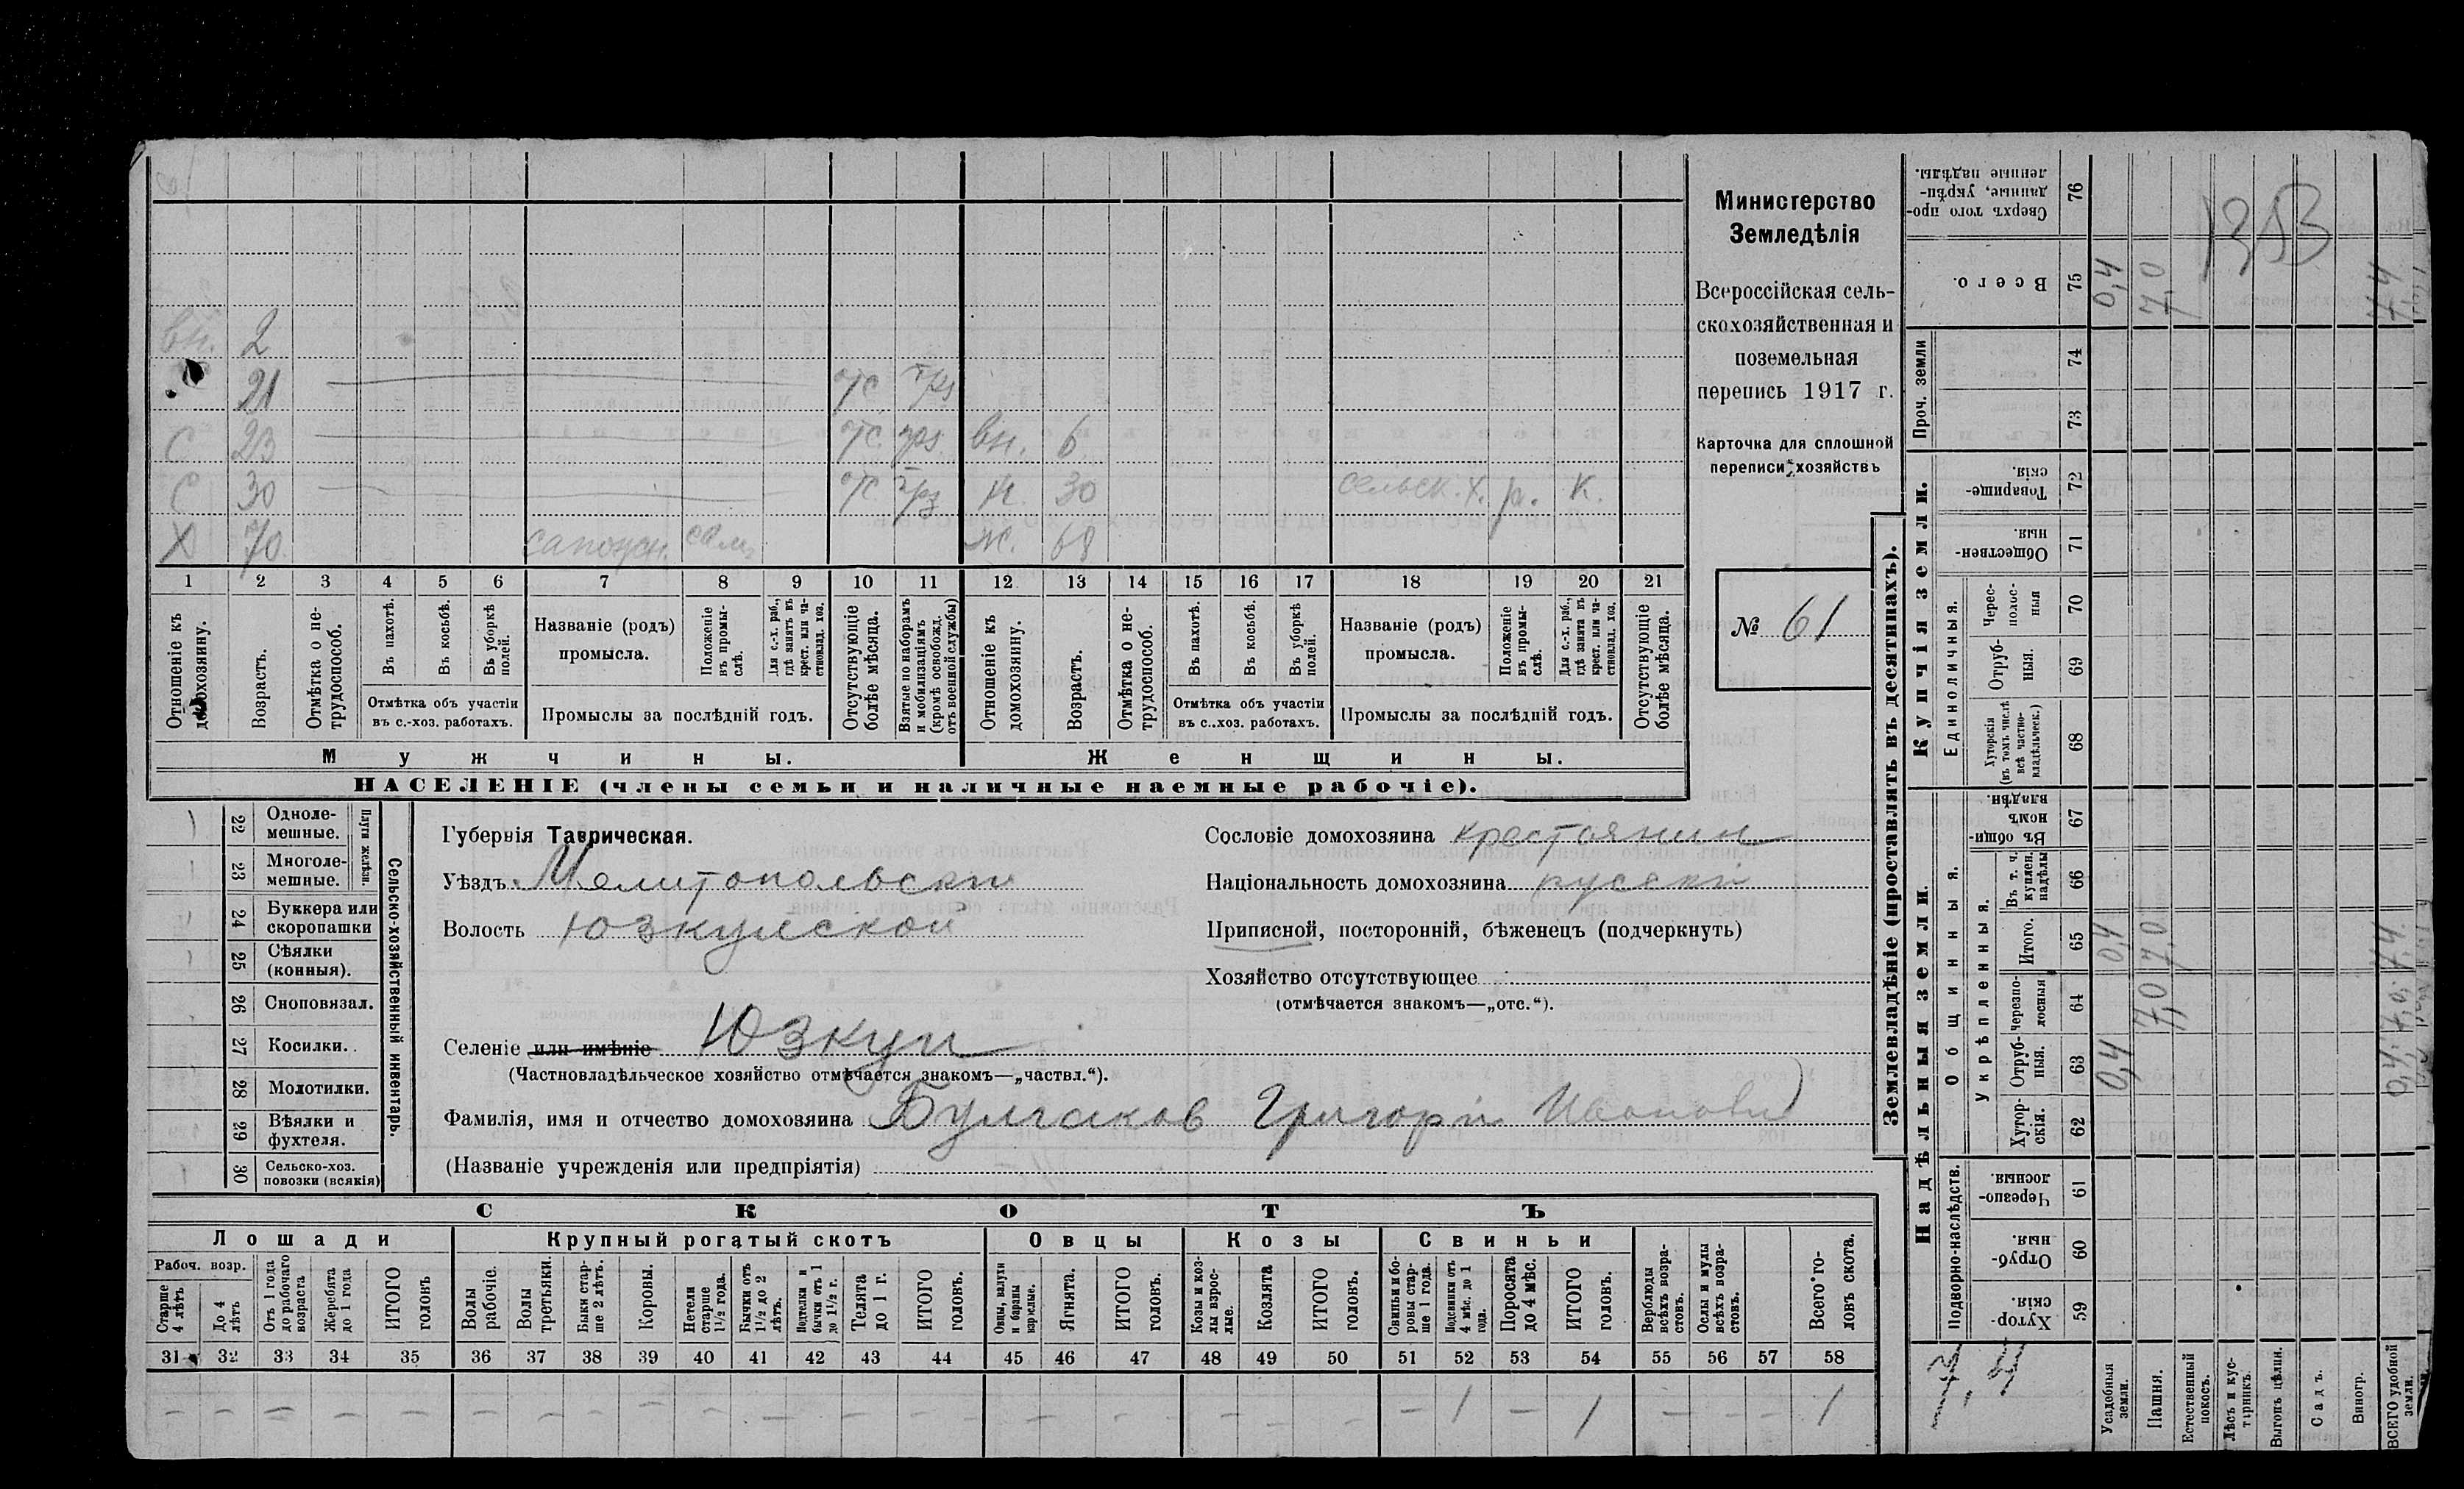 вн. 2
21 отс.
С 23 отс. вн. 6
С 30 отс. н. 30 сельск. х. р. к.
Х 70 сапожн. сам. ж. 68
1 2 3 4 5 6 7 8 9 10 11 12 13 14 15 16 17 18 19 20 21
Отношеніе къ домохозяину.
Возрастъ.
Отмѣтка о нетрудоспособ.
Въ пахотѣ.
Въ косьбѣ.
Въ уборкѣ полей.
Отмѣтка объ участіи въ с.-хоз. работахъ.
Названіе (родъ) промысла.
Положеніе въ промыслѣ.
Для с.-х. раб., гдѣ занятъ въ крест. или частновлад. хоз.
Промыслы за послѣдній годъ.
Отсутствующіе болѣе мѣсяца.
Взятые по наборамъ и мобилизаціямъ (кромѣ освобожд. отъ военной службы)
Отношеніе къ домохозяину.
Возрастъ.
Отмѣтка о нетрудоспособ.
Въ пахотѣ.
Въ косьбѣ.
Въ уборкѣ полей.
Отмѣтка объ участіи въ с..хоз. работахъ.
Названіе (родъ) промысла.
Положеніе въ промыслѣ.
Для с.-х. раб., гдѣ занята въ крест. или частновлад. хоз.
Промыслы за послѣдній годъ.
Отсутствующіе болѣе мѣсяца.
Мужчины.
Женщины.
НАСЕЛЕНІЕ (члены семьи и наличные наемные рабочіе).
Министерство
Земледѣлія
Всероссійская сель-
скохозяйственная и
поземельная
перепись 1917 г.
Карточка для сплошной
переписи хозяйствъ
№ 61
22 Одноле-мешные.
23 Многоле-мешные.
Плуги желѣзн.
24 Буккера или скоропашки
25 Сѣялки (конныя).
26 Сноповязал.
27 Косилки.
28 Молотилки.
29 Вѣялки и фухтеля.
30 Сельско-хоз. повозки (всякія)
Сельско-хозяйственный инвентарь.
Губернія Таврическая.
Уѣздъ Мелитопольскій
Волость Юзкуйской
Селеніе или имѣніе Юзкуи
(Частновладѣльческое хозяйство отмѣчается знакомъ—„частвл.“).
Фамилія, имя и отчество домохозяина Булгаков Григорій Иванови
(Названіе учрежденія или предпріятія)
Сословіе домохозяина крестоянин
Національность домохозяина руский
Приписной, посторонній, бѣженецъ (подчеркнуть)
Хозяйство отсутствующее
(отмѣчается знакомъ—„отс.“).
СКОТЪ
Лошади Крупный рогатый скотъ Овцы Козы Свиньи
Рабоч. возр.
Старше 4 лѣтъ
До 4 лѣтъ
Отъ 1 года до рабочаго возраста
Жеребята до 1 года
ИТОГО головъ
Волы рабочіе.
Волы третьяки.
Быки старше 2 лѣтъ.
Коровы.
Нетели старше 1½ года.
Бычки отъ 1½ до 2 лѣтъ.
Подтелки и бычки отъ 1 до 1½ г.
Телята до 1 г.
ИТОГО головъ.
Овцы, валухи и бараны взрослые.
Ягнята.
ИТОГО головъ.
Козы и козлы взрослые.
Козлята
ИТОГО головъ.
Свиньи и боровы старше 1 года.
Подсвинки отъ 4 мѣс. до 1 года.
Поросята до 4 мѣс.
ИТОГО головъ.
Верблюды всѣхъ возрастовъ.
Ослы и мулы всѣхъ возрастовъ.
Всего головъ скота.
31 32 33 34 35 36 37 38 39 40 41 42 43 44 45 46 47 48 49 50 51 52 53 54 55 56 57 58
– – – – – – – – – – – – – – – – – – – – – 1 – 1 – – – 1
Землевладѣніе (проставлять въ десятинахъ).
Надѣльныя земли.
Купчія земли.
Проч. земли
Подворно-наслѣдств.
Общинныя.
Укрѣпленныя.
Единоличныя.
Хуторскія 59
Отрубныя. 60
Черезполосныя 61
Хуторскія. 62
Отрубныя. 63 0,4
Черезполосныя 64 7,0
Итого. 65 0,4 7,0 7,4
Въ т. ч. куплен. надѣлы 66
Въ общинномъ владѣн. 67
Хуторскія (въ томъ числѣ всѣ частновладѣльческ.) 68
Отрубныя. 69
Черезполосныя 70
Общественныя 71
Товарищескія. 72
73
74
Всего. 75 0,4 7,0 7,4
Сверхъ того проданные, укрѣпленные надѣлы. 76
7,4
Усадебныя земли.
Пашня.
Естественный покосъ.
Лѣсъ и кустарникъ.
Выгонъ цѣлин.
Садъ.
Виногр.
ВСЕГО удобной земли.